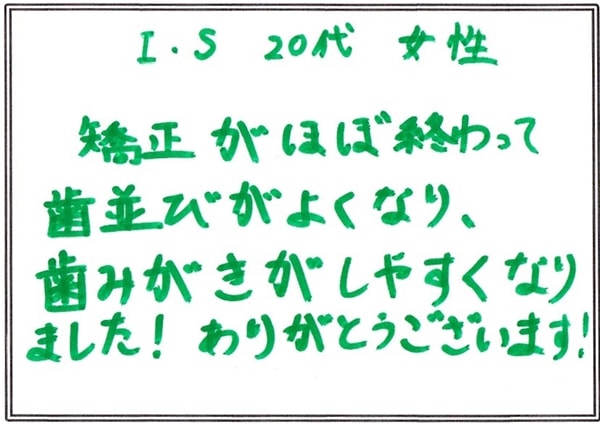 I・S 20代 女性
矯正がほぼ終わって
歯並びがよくなり、
歯みがきがしやすくなり
ました! ありがとうございます!